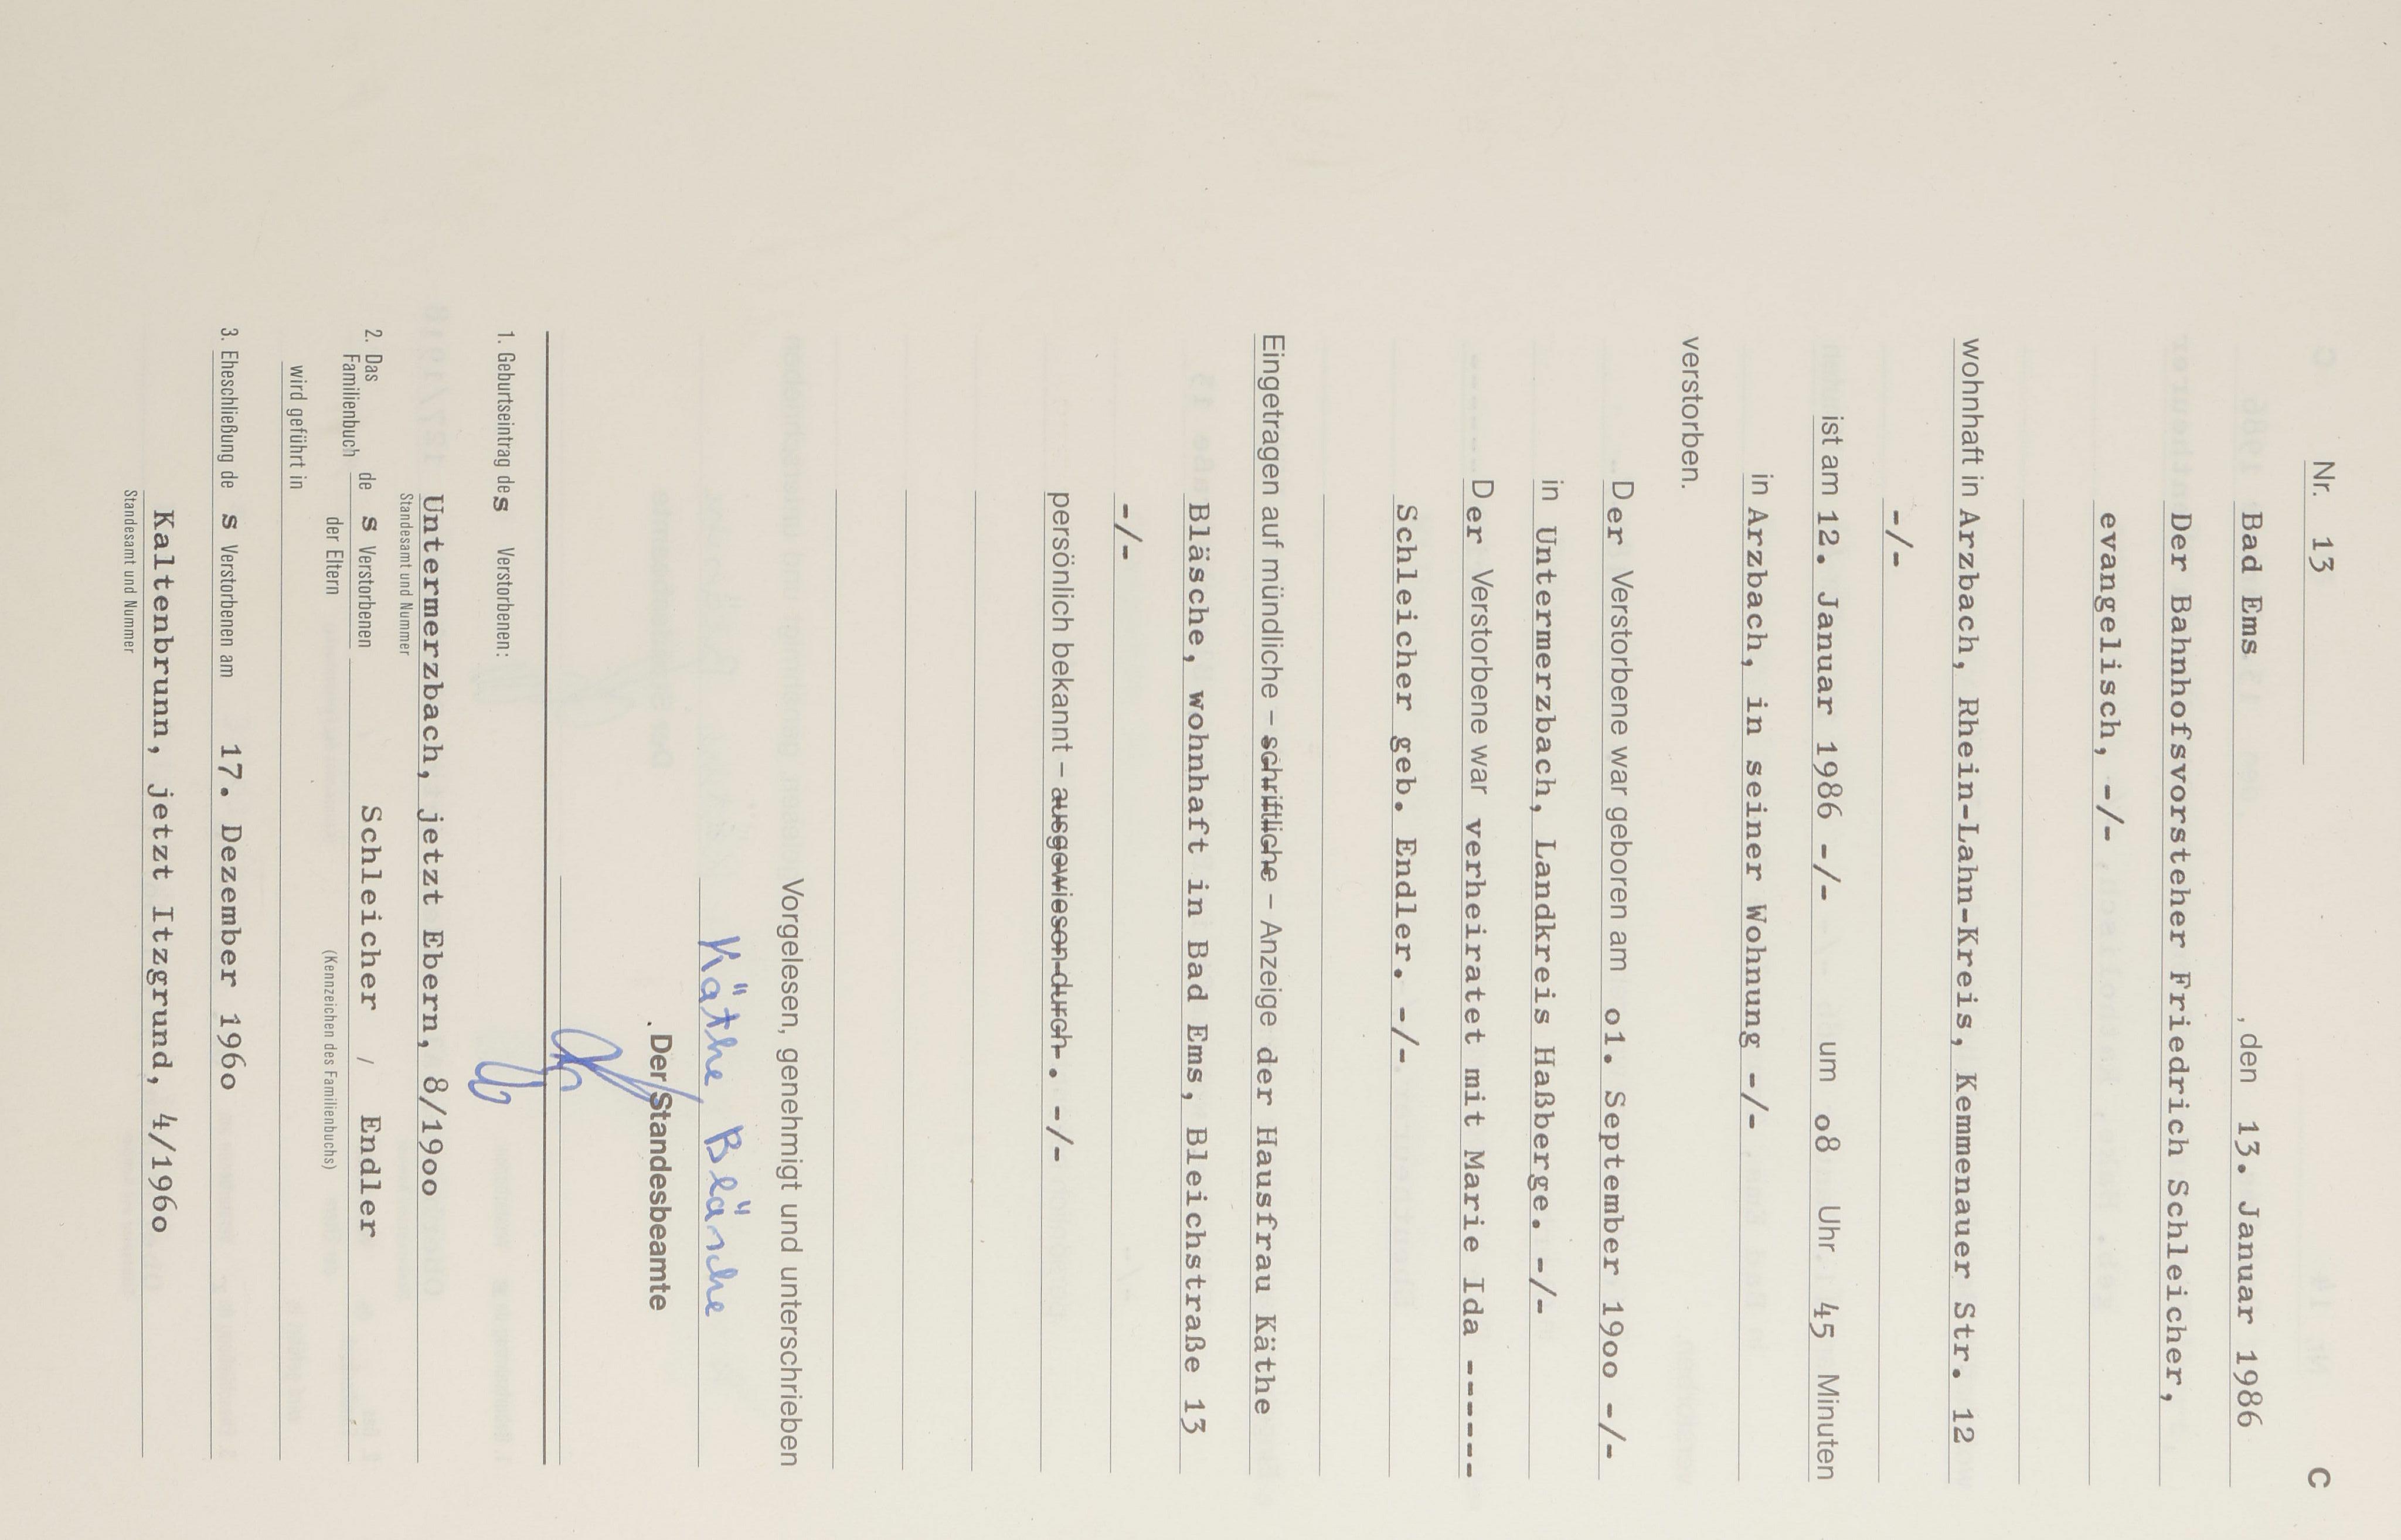 Nr. 13 C
Bad Ems, den 13. Januar 1986
Der Bahnhofsvorsteher Friedrich Schleicher,
evangelisch, -/-
wohnhaft in Arzbach, Rhein-Lahn-Kreis, Kemmenauer Str. 12
-/-
ist am 12. Januar 1986 -/- um o8 Uhr 45 Minuten
in Arzbach, in seiner Wohnung -/-
verstorben.
Der Verstorbene war geboren am o1. September 19oo -/-
in Untermerzbach, Landkreis Haßberge. -/-
Der Verstorbene war verheiratet mit Marie Ida ------
Schleicher geb. Endler. -/-
Eingetragen auf mündliche – schriftliche – Anzeige der Hausfrau Käthe
Bläsche, wohnhaft in Bad Ems, Bleichstraße 13
-/-
persönlich bekannt – ausgewiesen durch . -/-
Vorgelesen, genehmigt und unterschrieben
Käthe Bläsche
Der Standesbeamte
1. Geburtseintrag des Verstorbenen:
Untermerzbach, jetzt Ebern, 8/19oo
Standesamt und Nummer
2. Das Familienbuch de s Verstorbenen Schleicher / Endler
der Eltern (Kennzeichen des Familienbuchs)
wird geführt in
3. Eheschließung de s Verstorbenen am 17. Dezember 196o
Kaltenbrunn, jetzt Itzgrund, 4/196o
Standesamt und Nummer